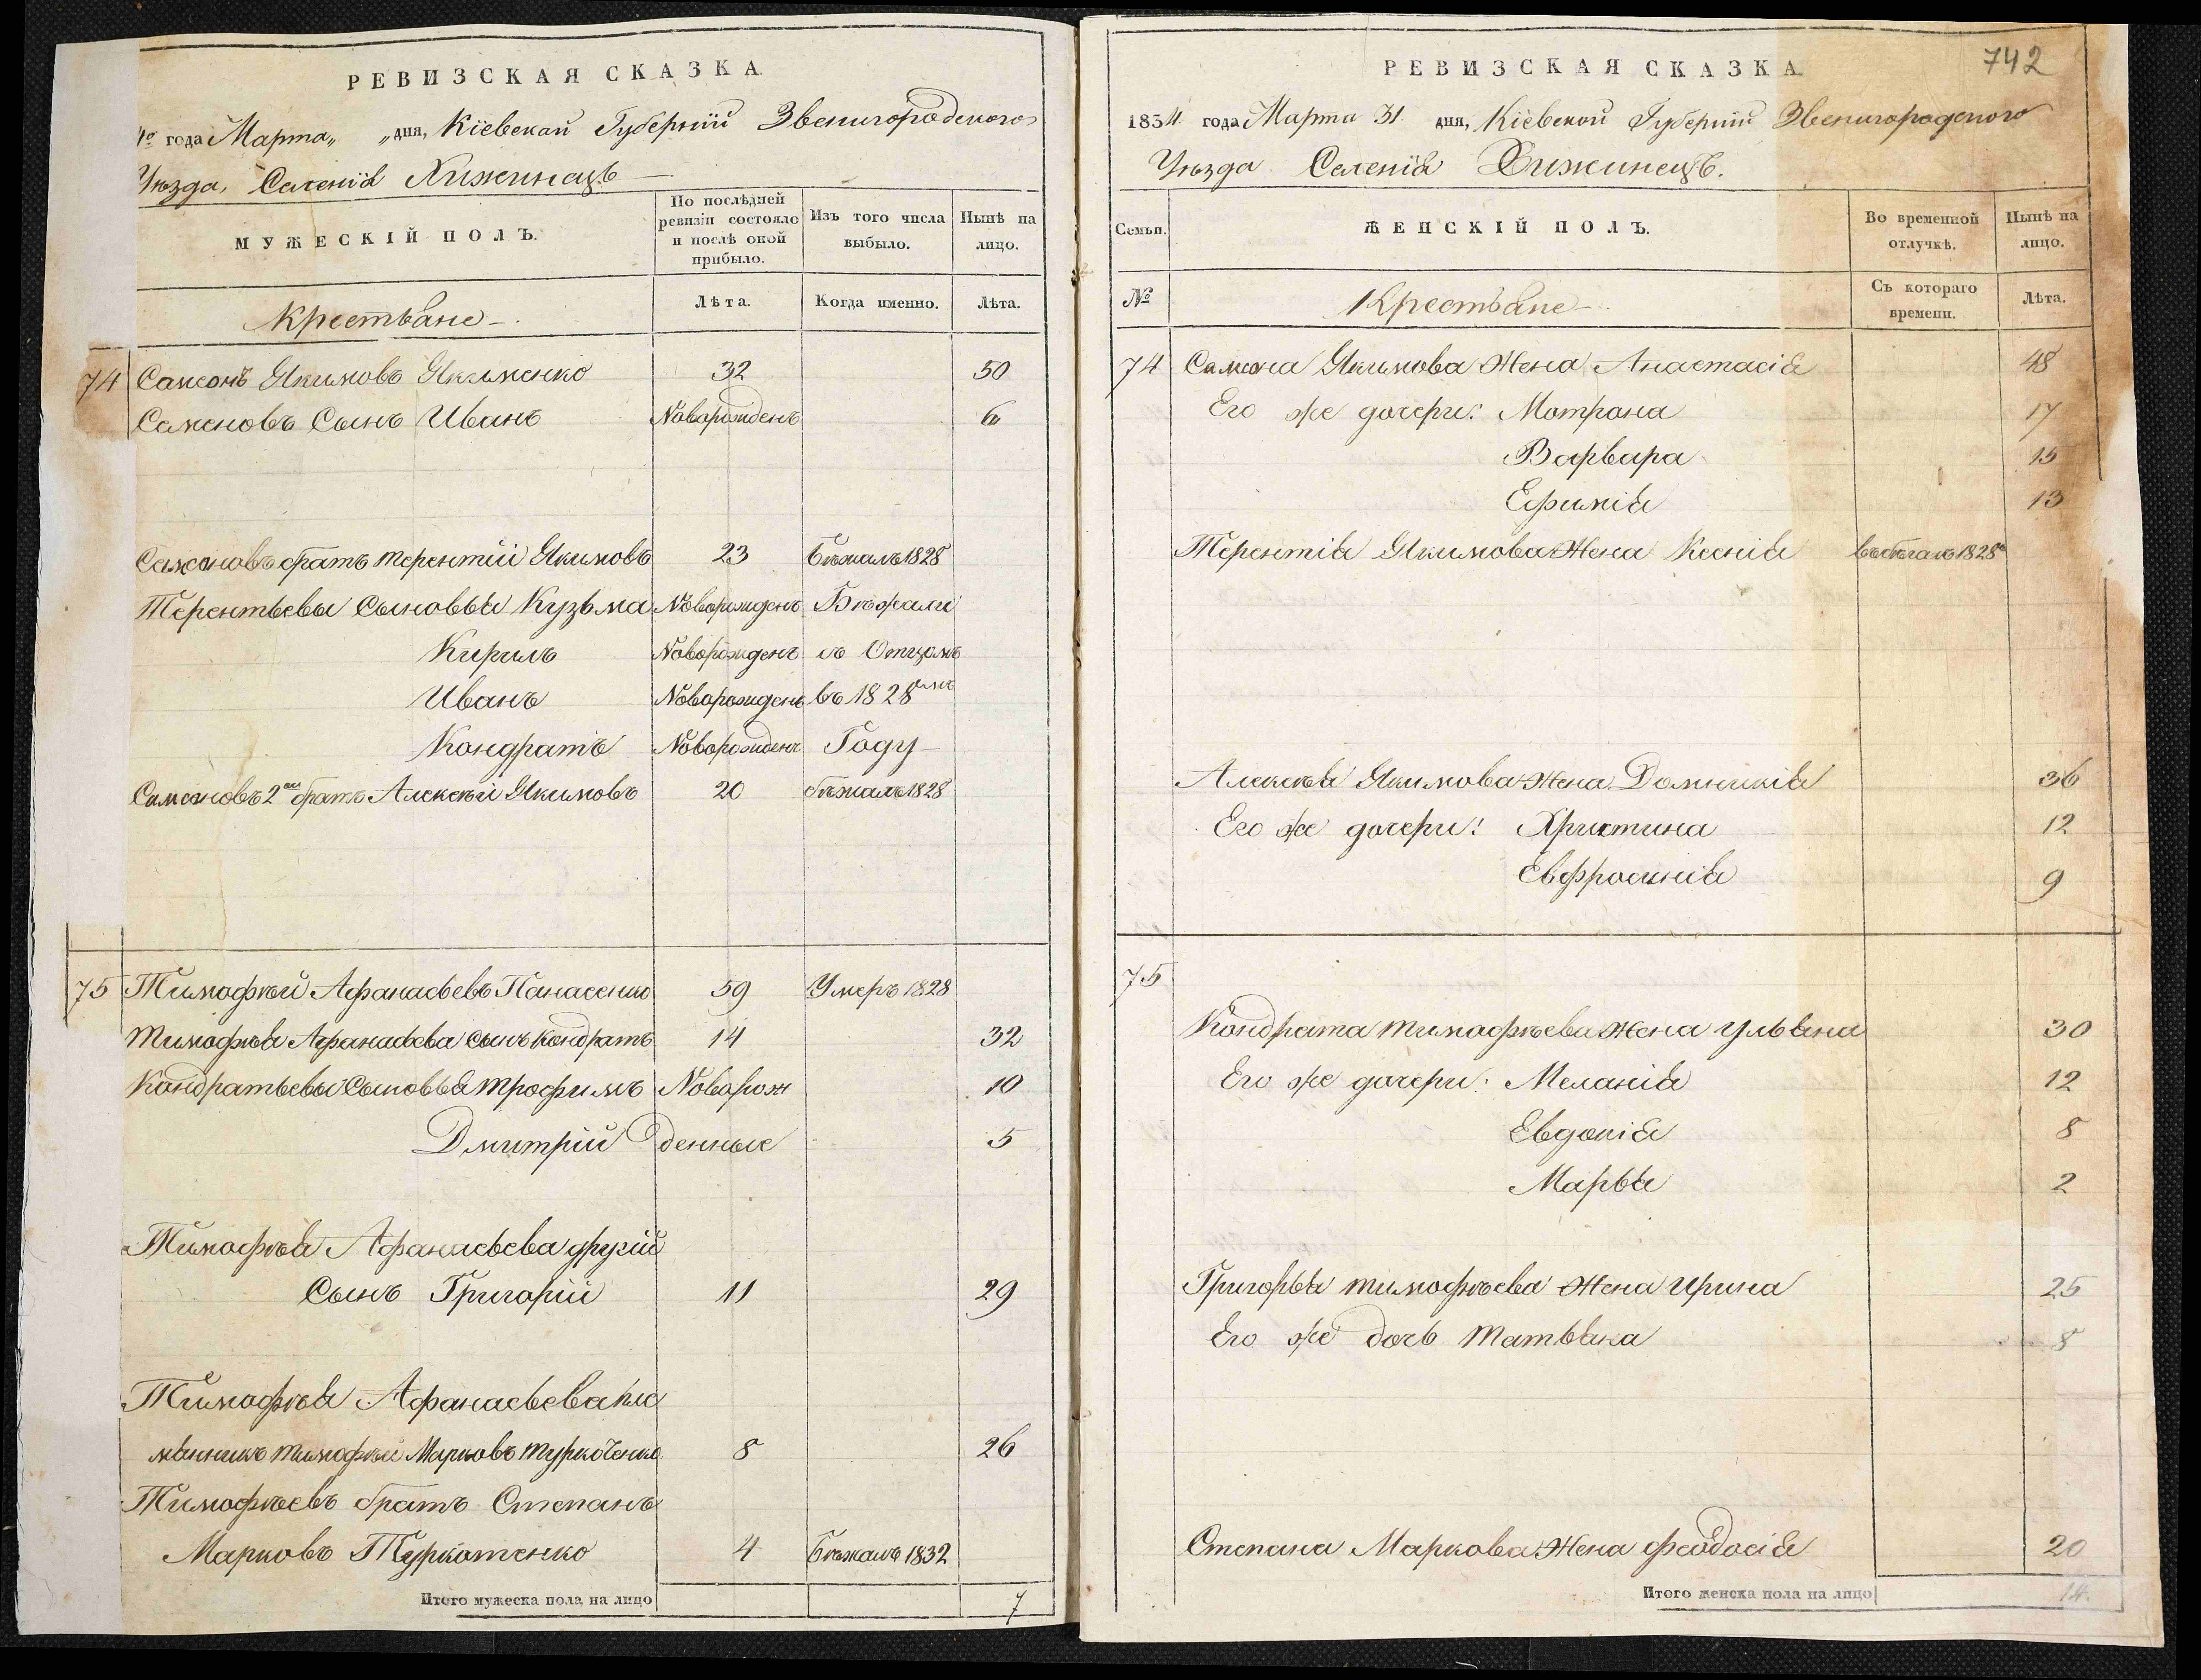 РЕВИЗСКАЯ СКАЗКА.
4го года Марта „ „ дня, Кіевской Губерніи Звенигородского
Уѣзда, Селенія Хижинецъ
МУЖЕСКІЙ ПОЛЪ.
По послѣдней ревизіи состояло и послѣ оной прибыло.
Изъ того числа выбыло.
Нынѣ на лицо.
Крестьяне
Лѣта.
Когда именно.
Лѣта.
74 Самсонъ Якимовъ Якименко 32 50
Самсоновъ Сынъ Иванъ Новорожденъ 6
Самсоновъ братъ Терентій Якимовъ 23 Бѣжалъ 1828
Терентьевы Сыновья Кузьма Новорожденъ Бѣжали
Кирилъ Новорожденъ съ Отцомъ
Иванъ Новорожденъ въ 1828омъ
Кондратъ Новорожденъ Году
Самсоновъ 2ой братъ Алексѣй Якимовъ 20 бѣжалъ 1828
75 Тимофѣй Афанасьевъ Панасенко 59 Умеръ 1828
Тимофѣя Афанасьева сынъ Кондратъ 14 32
Кондратьевы Сыновья Трофимъ Новорож 10
Дмитрій денные 5
Тимофѣя Афанасьева другій
Сынъ Григорій 11 29
Тимофѣя Афанасьева пле
мянникъ Тимофѣй Марковъ Туркотенко 8 26
Тимофѣевъ братъ Степанъ
Марковъ Туркотенко 4 Бѣжалъ 1832
Итого мужеска пола на лицо 7
742
РЕВИЗСКАЯ СКАЗКА.
1834 года Марта 31. дня, Кіевской Губерніи Звенигородского
Уѣзда Селенія Хижинецъ.
Семьи.
ЖЕНСКІЙ ПОЛЪ.
Во временной отлучкѣ.
Нынѣ на лицо.
№
Крестьяне
Съ котораго времени.
Лѣта.
74 Самсона Якимова Жена Анастасія 48
Его же дочери: Мотрона 17
Варвара 15
Ефимія 13
Терентія Якимова Жена Ксенія въ бѣгахъ 1828
Алексѣя Якимова жена Домникія 36
Его же дочери: Христина 12
Евфросинія 9
75
Кондрата Тимофѣева Жена Ульяна 30
Его же дочери: Меланія 12
Евдокія 8
Марья 2
Григорья Тимофѣева Жена Ирина 25
Его же дочь Татьяна 8
Степана Маркова Жена Феодосія 20
Итого женска пола на лицо 14.